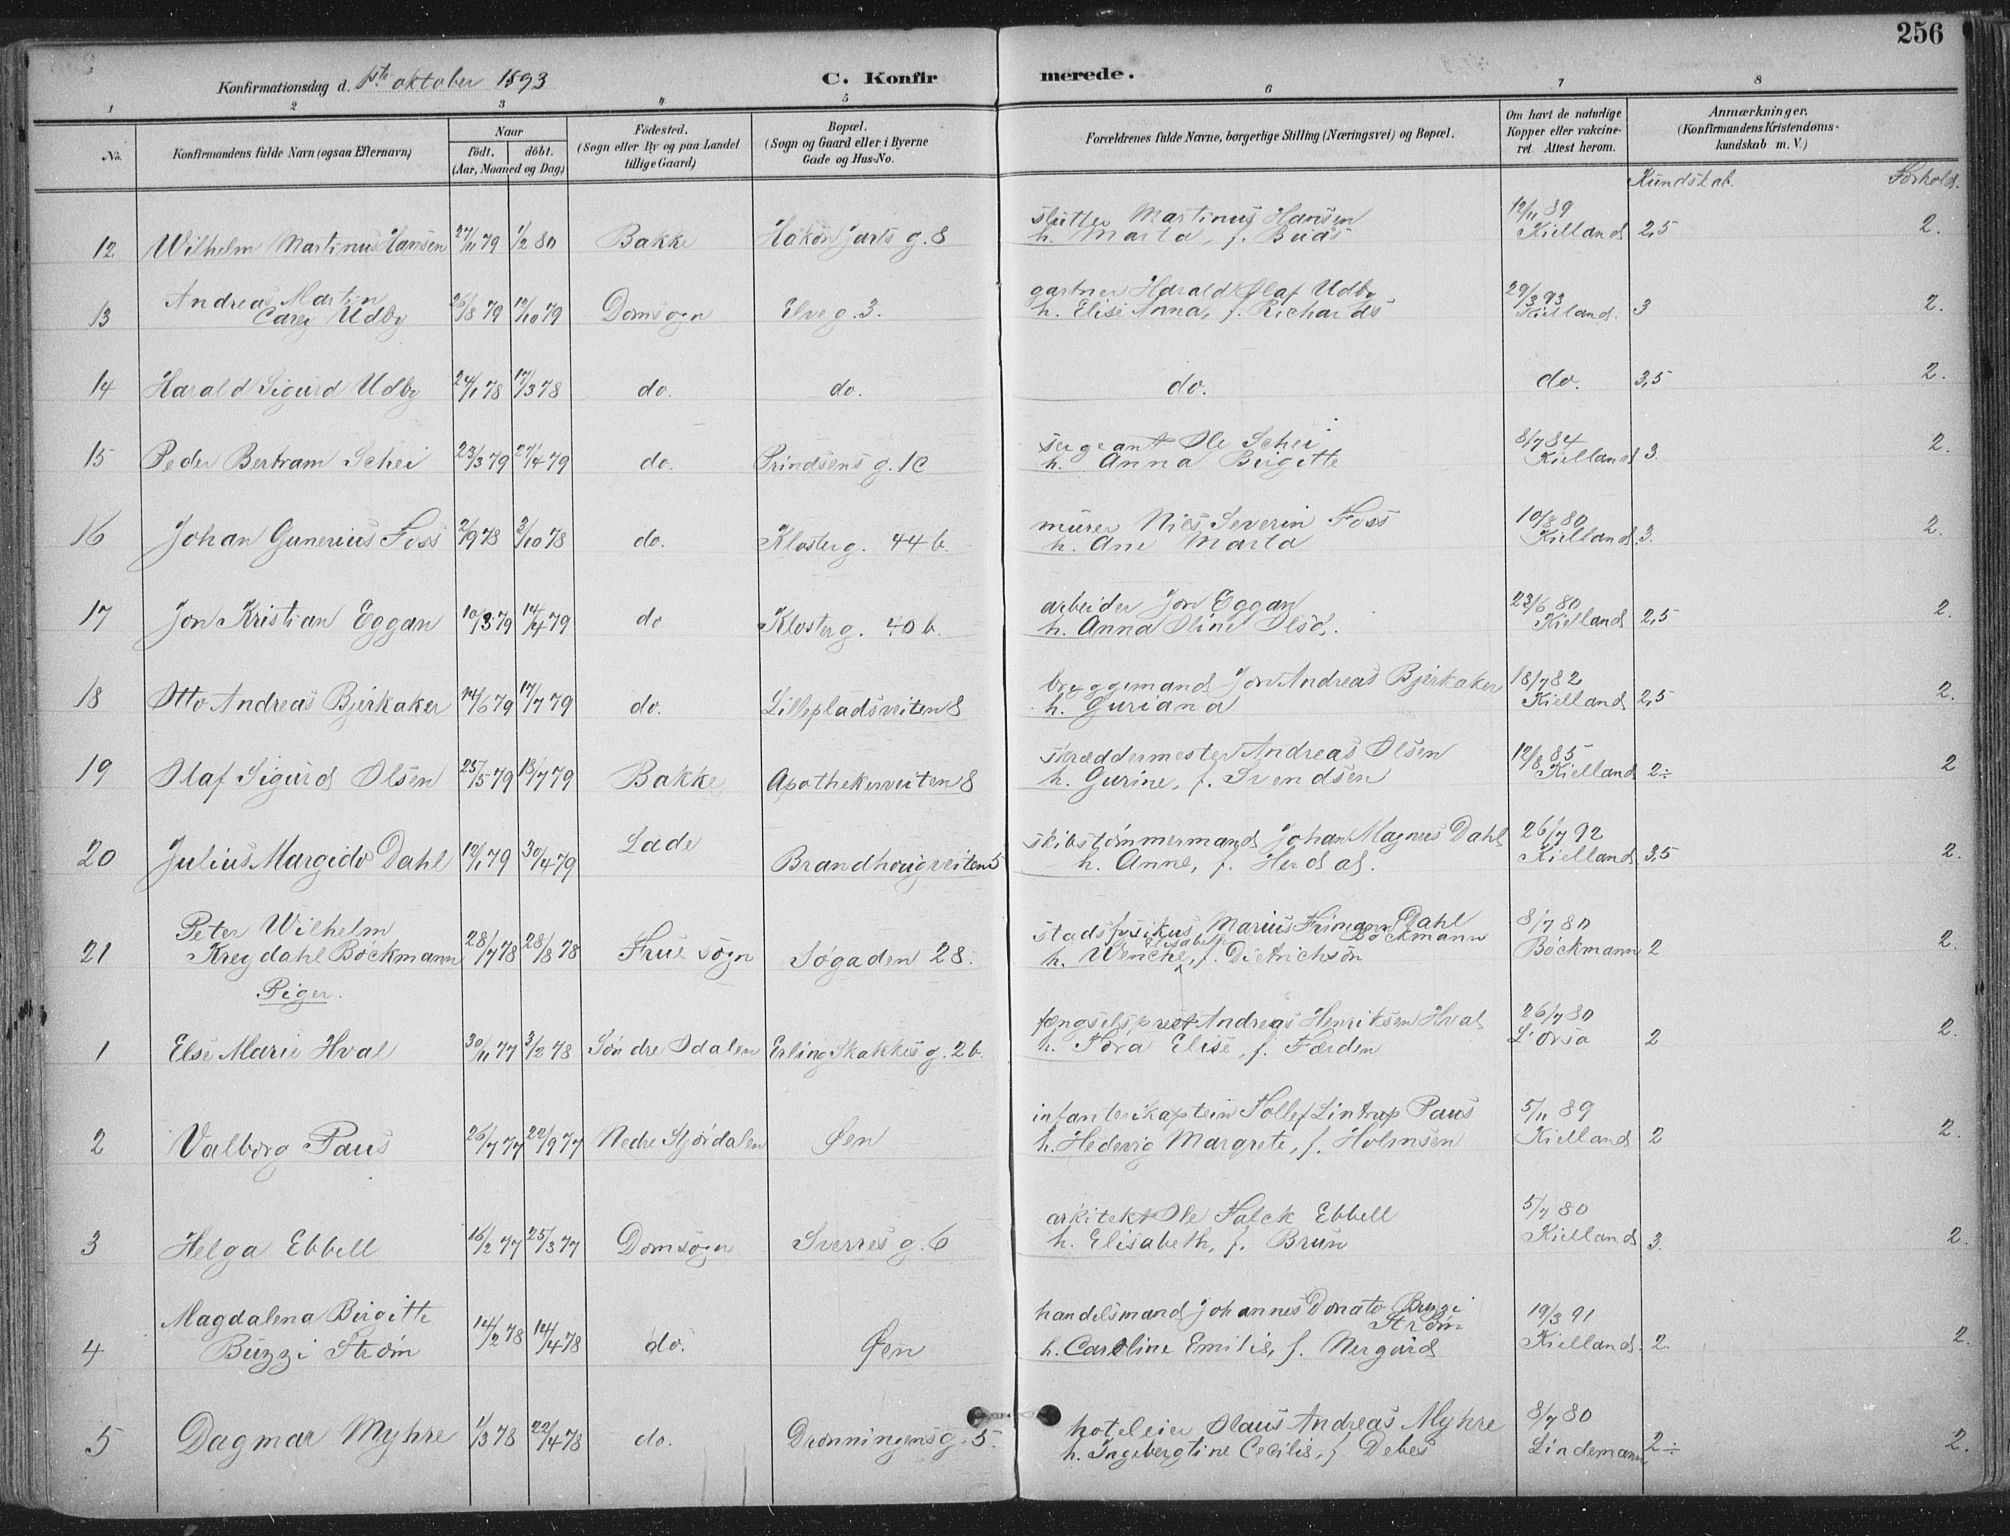 256
Konfirmationsdag d. 1ste oktober 1893
C. Konfirmerede.
1 2 3 4 5 6 7 8
No.
Konfirmandens fulde Navn (ogsaa Efternavn)
Naar
födt. döbt.
(Aar, Maaned og Dag)
Födested.
(Sogn eller By og paa Landet
tillige Gaard)
Bopæl.
(Sogn og Gaard eller i Byerne
Gade og Hus-No.
Forældrenes fulde Navne, borgerlige Stilling (Næringsvei) og Bopæl.
Om havt de naturlige
Kopper eller vakcine-
ret. Attest herom.
Anmærkninger.
(Konfirmandens Kristendoms-
kundskab m. V.)
Kundskab. Forhold.
12 Wilhelm Martinus Hansen 27/11 79 1/2 80 Bakke Håkon Jarls g. 8 slutter Martinus Hansen
h. Marta, f. Buås 12/11 89 Kielland 2,5 2.
13 Andreas Martin
Carey Udby 26/8 79 12/10 79 Domsogn Elveg. 3. gartner Harald Olaf Udby
h. Elise Anna, f. Richards 29/3 93 Kielland. 3 2.
14 Harald Sigurd Udby 24/1 78 17/3 78 do. do. do. do. 3,5 2.
15 Peder Bertram Schei 23/3 79 27/4 79 do. Prindsens g. 1c sergeant Ole Schei
h. Anna Birgitte 8/7 84 Kielland 3. 2.
16 Johan Gunerius Foss 2/9 78 3/10 78 do. Klosterg. 44 b. murer Nils Severin Foss
h. Ane Marta 10/8 80 Kielland. 3. 2.
17 Jon Kristian Eggan 10/3 79 14/4 79 do Klosterg. 40 b. arbeider Jon Eggan
h. Anna Oline Olsd. 23/6 80 Kielland 2,5 2.
18 Otto Andreas Bjerkaker 14/6 79 17/7 79 do. Lillepladsveiten 8 bryggemand Jon Andreas Bjerkaker
h. Guriana 18/7 82 Kielland 2,5 2.
19 Olaf Sigurd Olsen 25/5 79 18/7 79 Bakke Apothekerveiten 8 skræddermester Andreas Olsen
h. Gurine, f. Svendsen 12/8 85 Kielland 2÷ 2
20 Julius Margido Dahl 12/1 79 30/4 79 Lade Brandhougveiten 5 skibstømmermand Johan Magnus Dahl
h. Anne, f. Herdal. 26/7 92 Kielland 3,5 2.
21 Peter Wilhelm
Kreydahl Bóckmann 28/7 78 28/8 78 Frue sogn Søgaden 28. stadsfysikus Marius Frimann Dahl
Bóckmann
h. Wenche Elisabeth, f. Dietrichson 8/7 80 Bóckmann 2 2.
Piger.
1 Else Marie Hval 30/11 77 3/2 78 Søndre Odalen Erling Skakkes g. 2b. fængselsprest Andreas Henriksen Hval
h. Tora Elise, f. Færden 26/7 80 L Orsa 2 2.
2 Valborg Paus 26/7 77 22/9 77 Nedre Stjørdalen Øen infanterikaptein Tollef Lintrup Paus
h. Hedevig Margrete, f. Holmsen 5/11 89 Kielland 2 2.
3 Helga Ebbell 16/2 77 25/3 77 Domsogn Sverres g. 6 arkitekt Ole Falck Ebbell
h. Elisabeth, f. Brun 5/7 80 Kielland 3. 2.
4 Magdalena Birgitte
Buzzi Strøm 14/2 78 14/4 78 do. Øen handelsmand Johannes Donato Buzzi
Strøm
h. Caroline Emilie, f. Nergård 19/3 91 Kielland. 2. 2.
5 Dagmar Myhre 1/3 78 22/4 78 do. Dronningensg. 5. hoteleier Olaus Andreas Myhre
h. Ingebergtine Cecilie, f. Debes 8/7 80 Lindemann 2÷ 2.